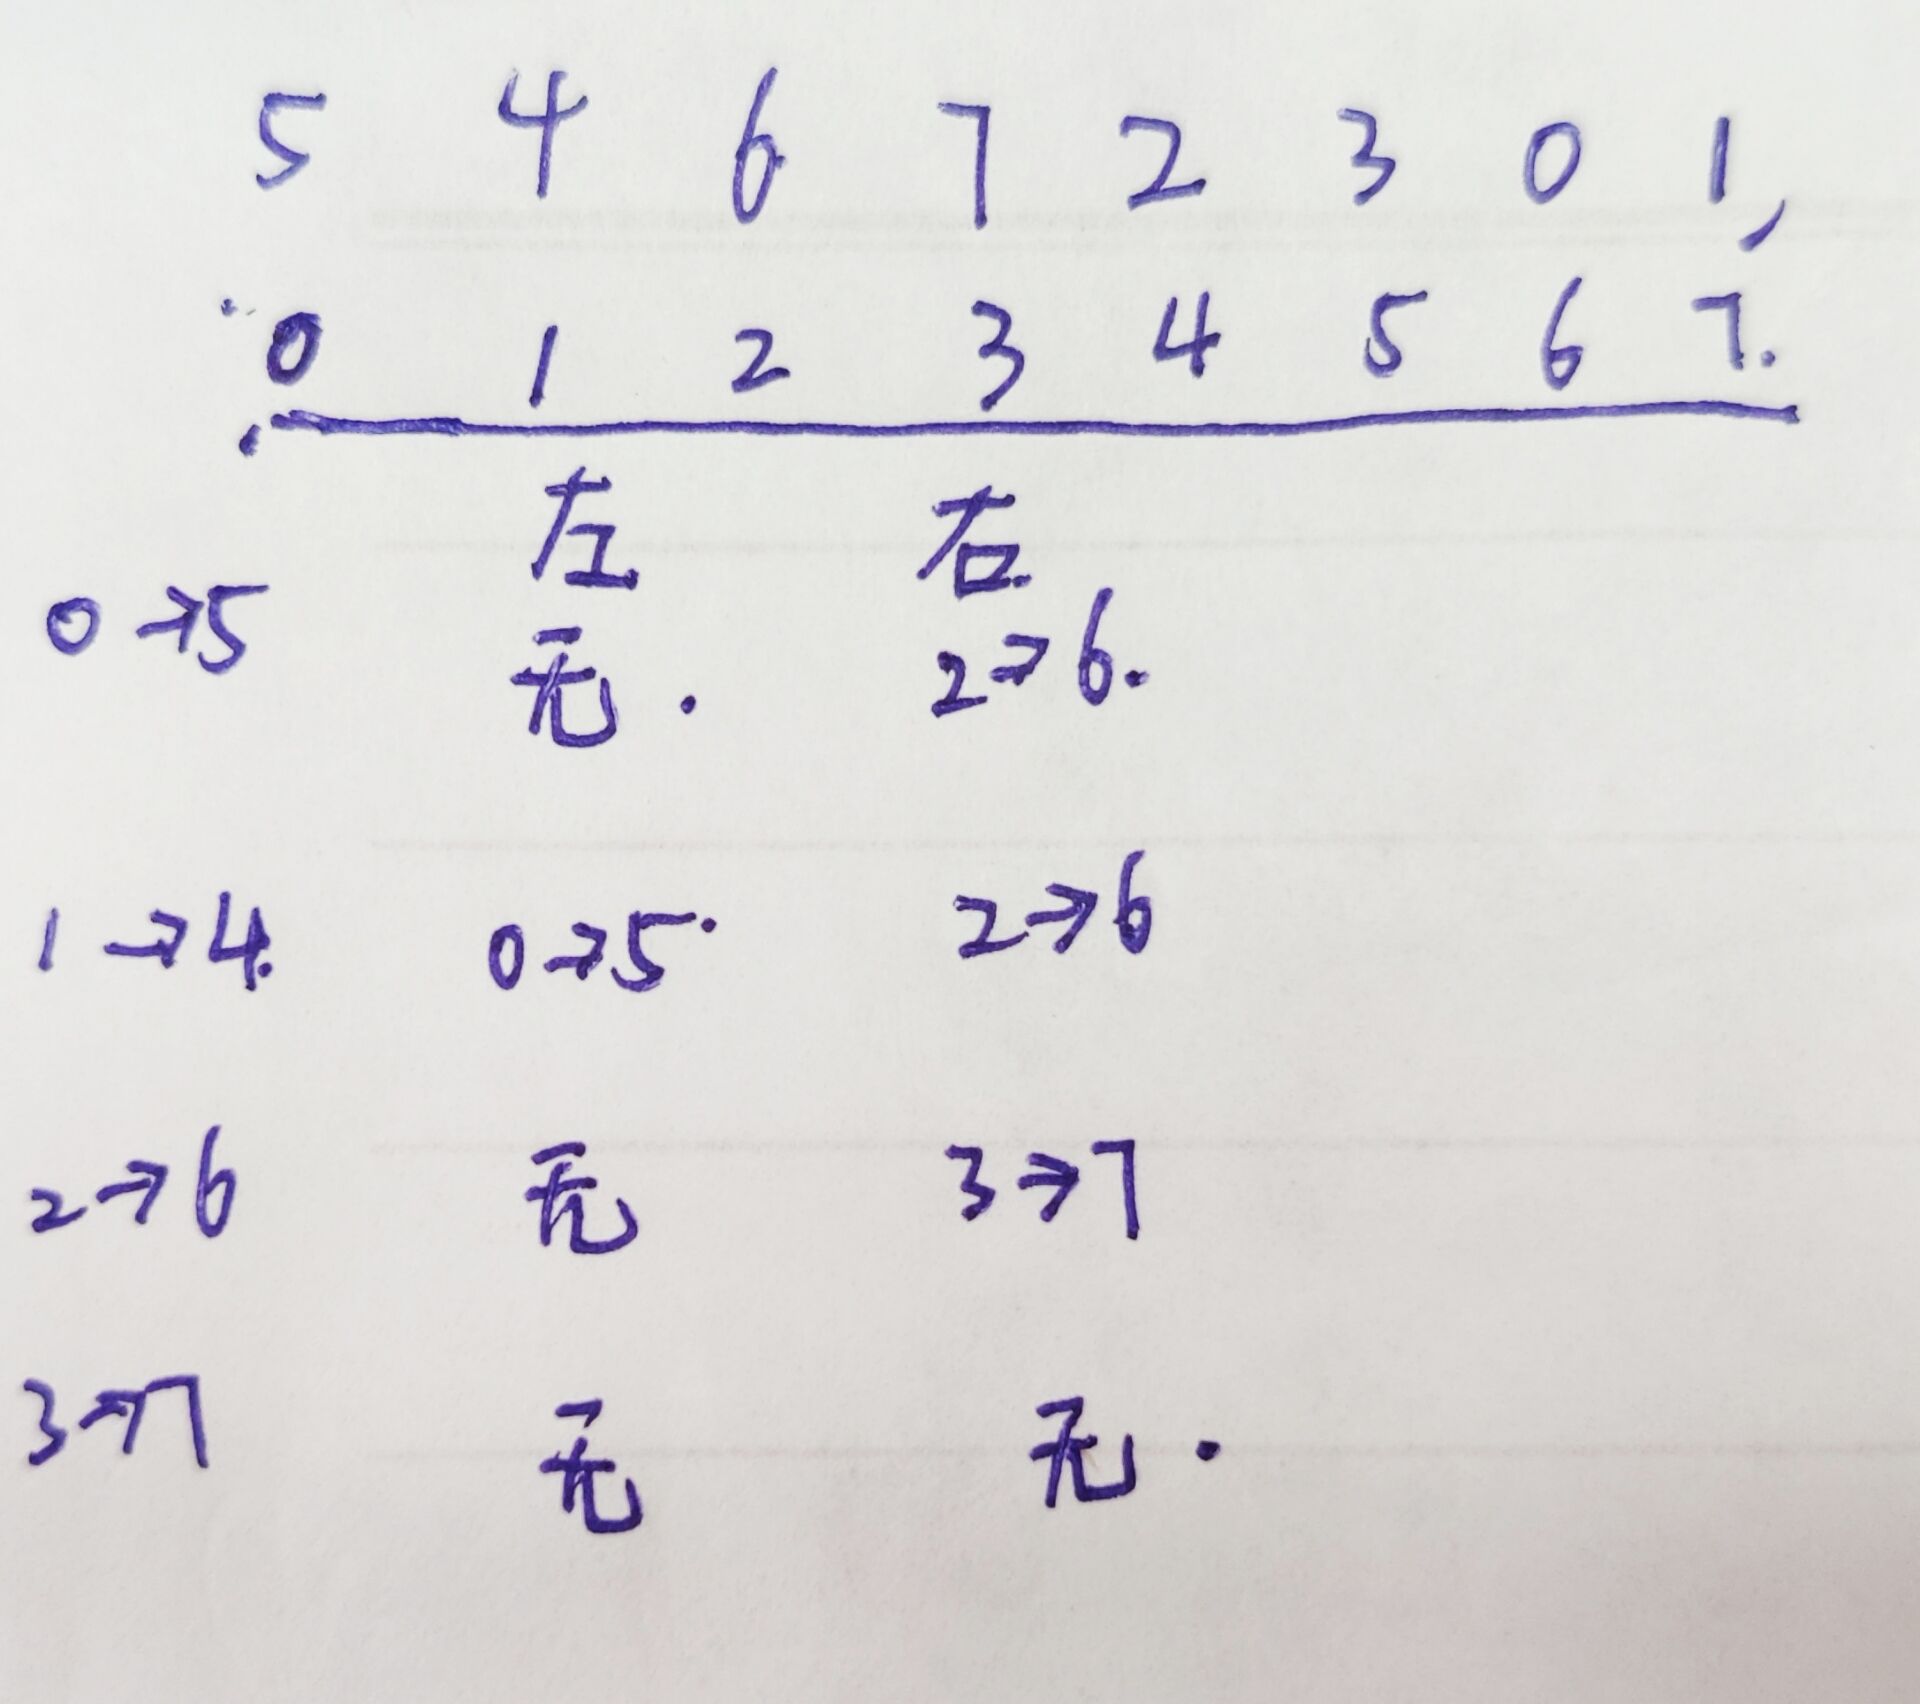 5 4 6 7 2 3 0 1,
0 1 2 3 4 5 6 7.
左 右.
0→5 无. 2→6.
1→4. 0→5. 2→6
2→6 无 3→7
3→7 无 无.